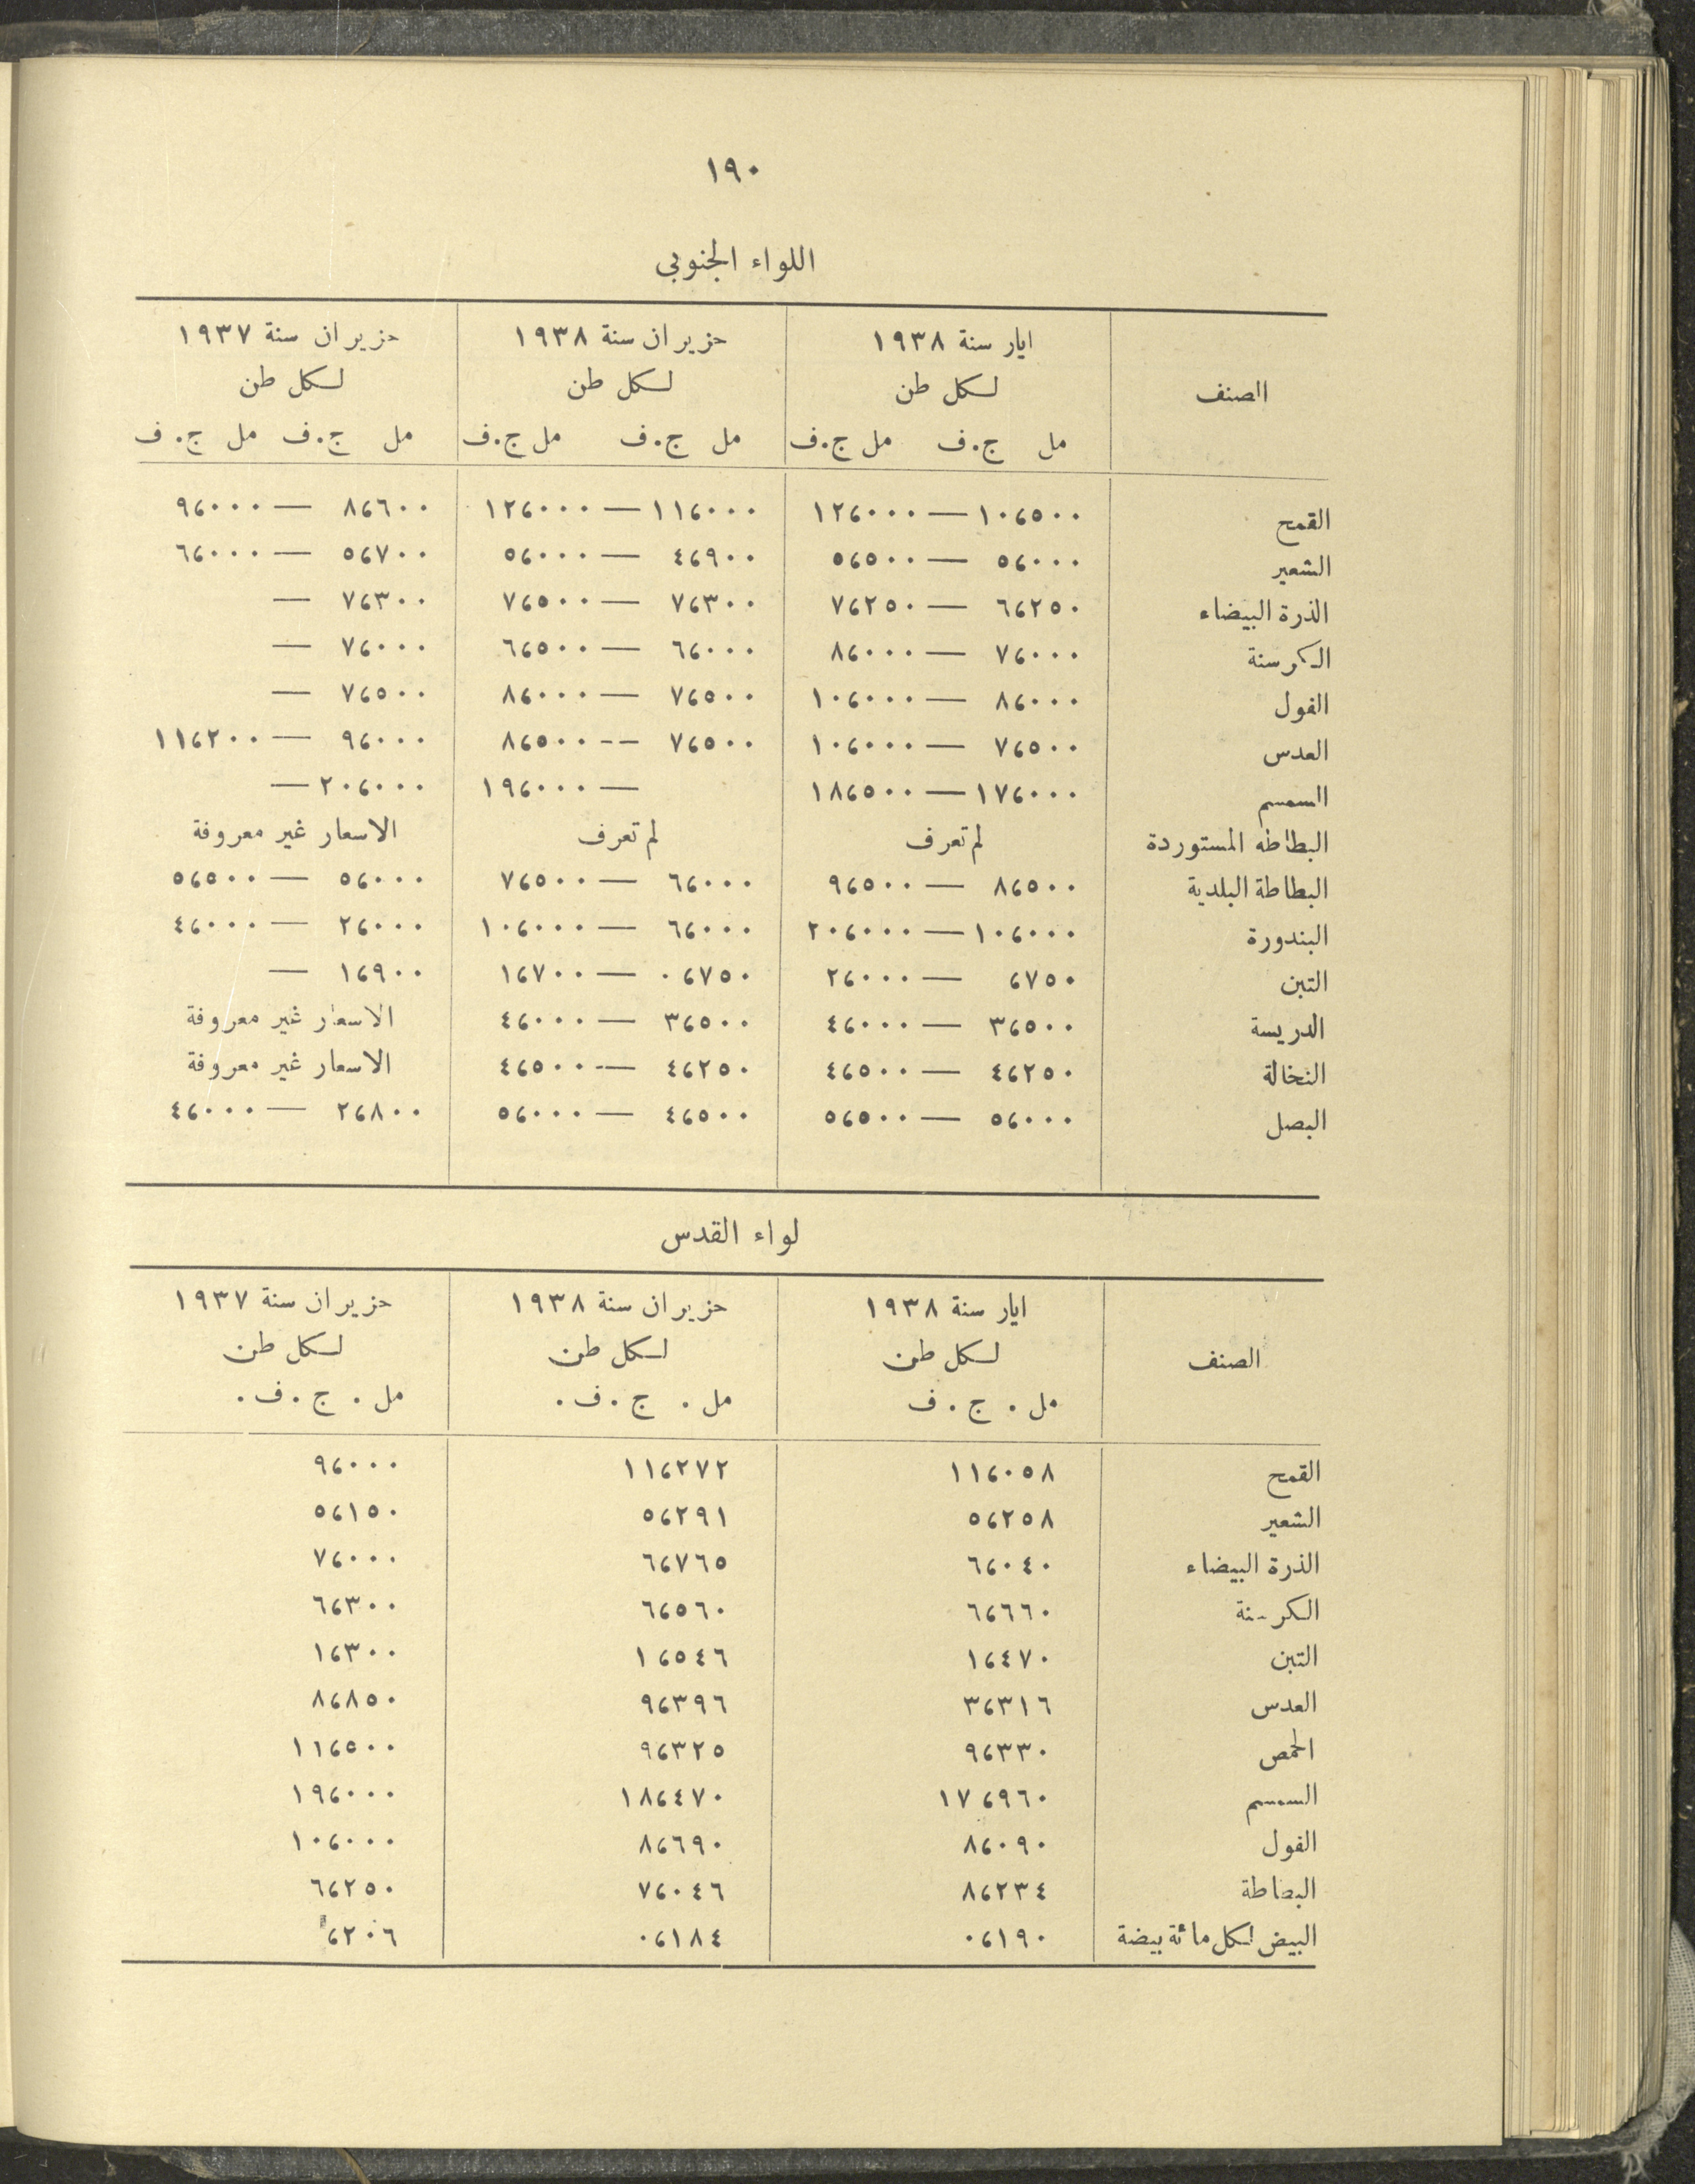 ١٩٠
اللواء الجنوبي
الصنف ايار سنة ١٩٣٨ حزيران سنة ١٩٣٨ حزيران سنة ١٩٣٧
لكل طن لكل طن لكل طن
مل ج.ف مل ج.ف مل ج.ف مل ج.ف مل ج.ف مل ج.ف
القمح ١٠،٥٠٠ — ١٢،٠٠٠ ١١،٠٠٠ — ١٢،٠٠٠ ٨،٦٠٠ — ٩،٠٠٠
الشعير ٥،٠٠٠ — ٥،٥٠٠ ٤،٩٠٠ — ٥،٠٠٠ ٥،٧٠٠ — ٦،٠٠٠
الذرة البيضاء ٦،٢٥٠ — ٧،٢٥٠ ٧،٣٠٠ — ٧،٥٠٠ ٧،٣٠٠ —
الكرسنة ٧،٠٠٠ — ٨،٠٠٠ ٦،٠٠٠ — ٦،٥٠٠ ٧،٠٠٠ —
الفول ٨،٠٠٠ — ١٠،٠٠٠ ٧،٥٠٠ — ٨،٠٠٠ ٧،٥٠٠ —
العدس ٧،٥٠٠ — ١٠،٠٠٠ ٧،٥٠٠ -- ٨،٥٠٠ ٩،٠٠٠ — ١١،٢٠٠
السمسم ١٧،٠٠٠ — ١٨،٥٠٠ — ١٩،٠٠٠ ٢٠،٠٠٠ —
البطاطه المستوردة لم تعرف لم تعرف الاسعار غير معروفة
البطاطة البلدية ٨،٥٠٠ — ٩،٥٠٠ ٦،٠٠٠ — ٧،٥٠٠ ٥،٠٠٠ — ٥،٥٠٠
البندورة ١٠،٠٠٠ — ٢٠،٠٠٠ ٦،٠٠٠ — ١٠،٠٠٠ ٢،٠٠٠ — ٤،٠٠٠
التبن ،٧٥٠ — ٢،٠٠٠ ٠،٧٥٠ — ١،٧٠٠ ١،٩٠٠ —
الدريسة ٣،٥٠٠ — ٤،٠٠٠ ٣،٥٠٠ — ٤،٠٠٠ الاسعار غير معروفة
النخالة ٤،٢٥٠ — ٤،٥٠٠ ٤،٢٥٠ — ٤،٥٠٠ الاسعار غير معروفة
البصل ٥،٠٠٠ — ٥،٥٠٠ ٤،٥٠٠ — ٥،٠٠٠ ٢،٨٠٠ — ٤،٠٠٠
لواء القدس
الصنف ايار سنة ١٩٣٨ حزيران سنة ١٩٣٨ حزيران سنة ١٩٣٧
لكل طن لكل طن لكل طن
مل . ج . ف مل . ج . ف . مل . ج . ف .
القمح ١١،٠٥٨ ١١،٢٧٢ ٩،٠٠٠
الشعير ٥،٢٥٨ ٥،٢٩١ ٥،١٥٠
الذرة البيضاء ٦،٠٤٠ ٦،٧٦٥ ٧،٠٠٠
الكرسنة ٦،٦٦٠ ٦،٥٦٠ ٦،٣٠٠
التبن ١،٤٧٠ ١،٥٤٦ ١،٣٠٠
العدس ٣،٣١٦ ٩،٣٩٦ ٨،٨٥٠
الحمص ٩،٣٣٠ ٩،٣٢٥ ١١،٥٠٠
السمسم ١٧،٩٦٠ ١٨،٤٧٠ ١٩،٠٠٠
الفول ٨،٠٩٠ ٨،٦٩٠ ١٠،٠٠٠
البطاطة ٨،٢٣٤ ٧،٠٤٦ ٦،٢٥٠
البيض لكل مائة بيضة ٠،١٩٠ ٠،١٨٤ ،٢٠٦